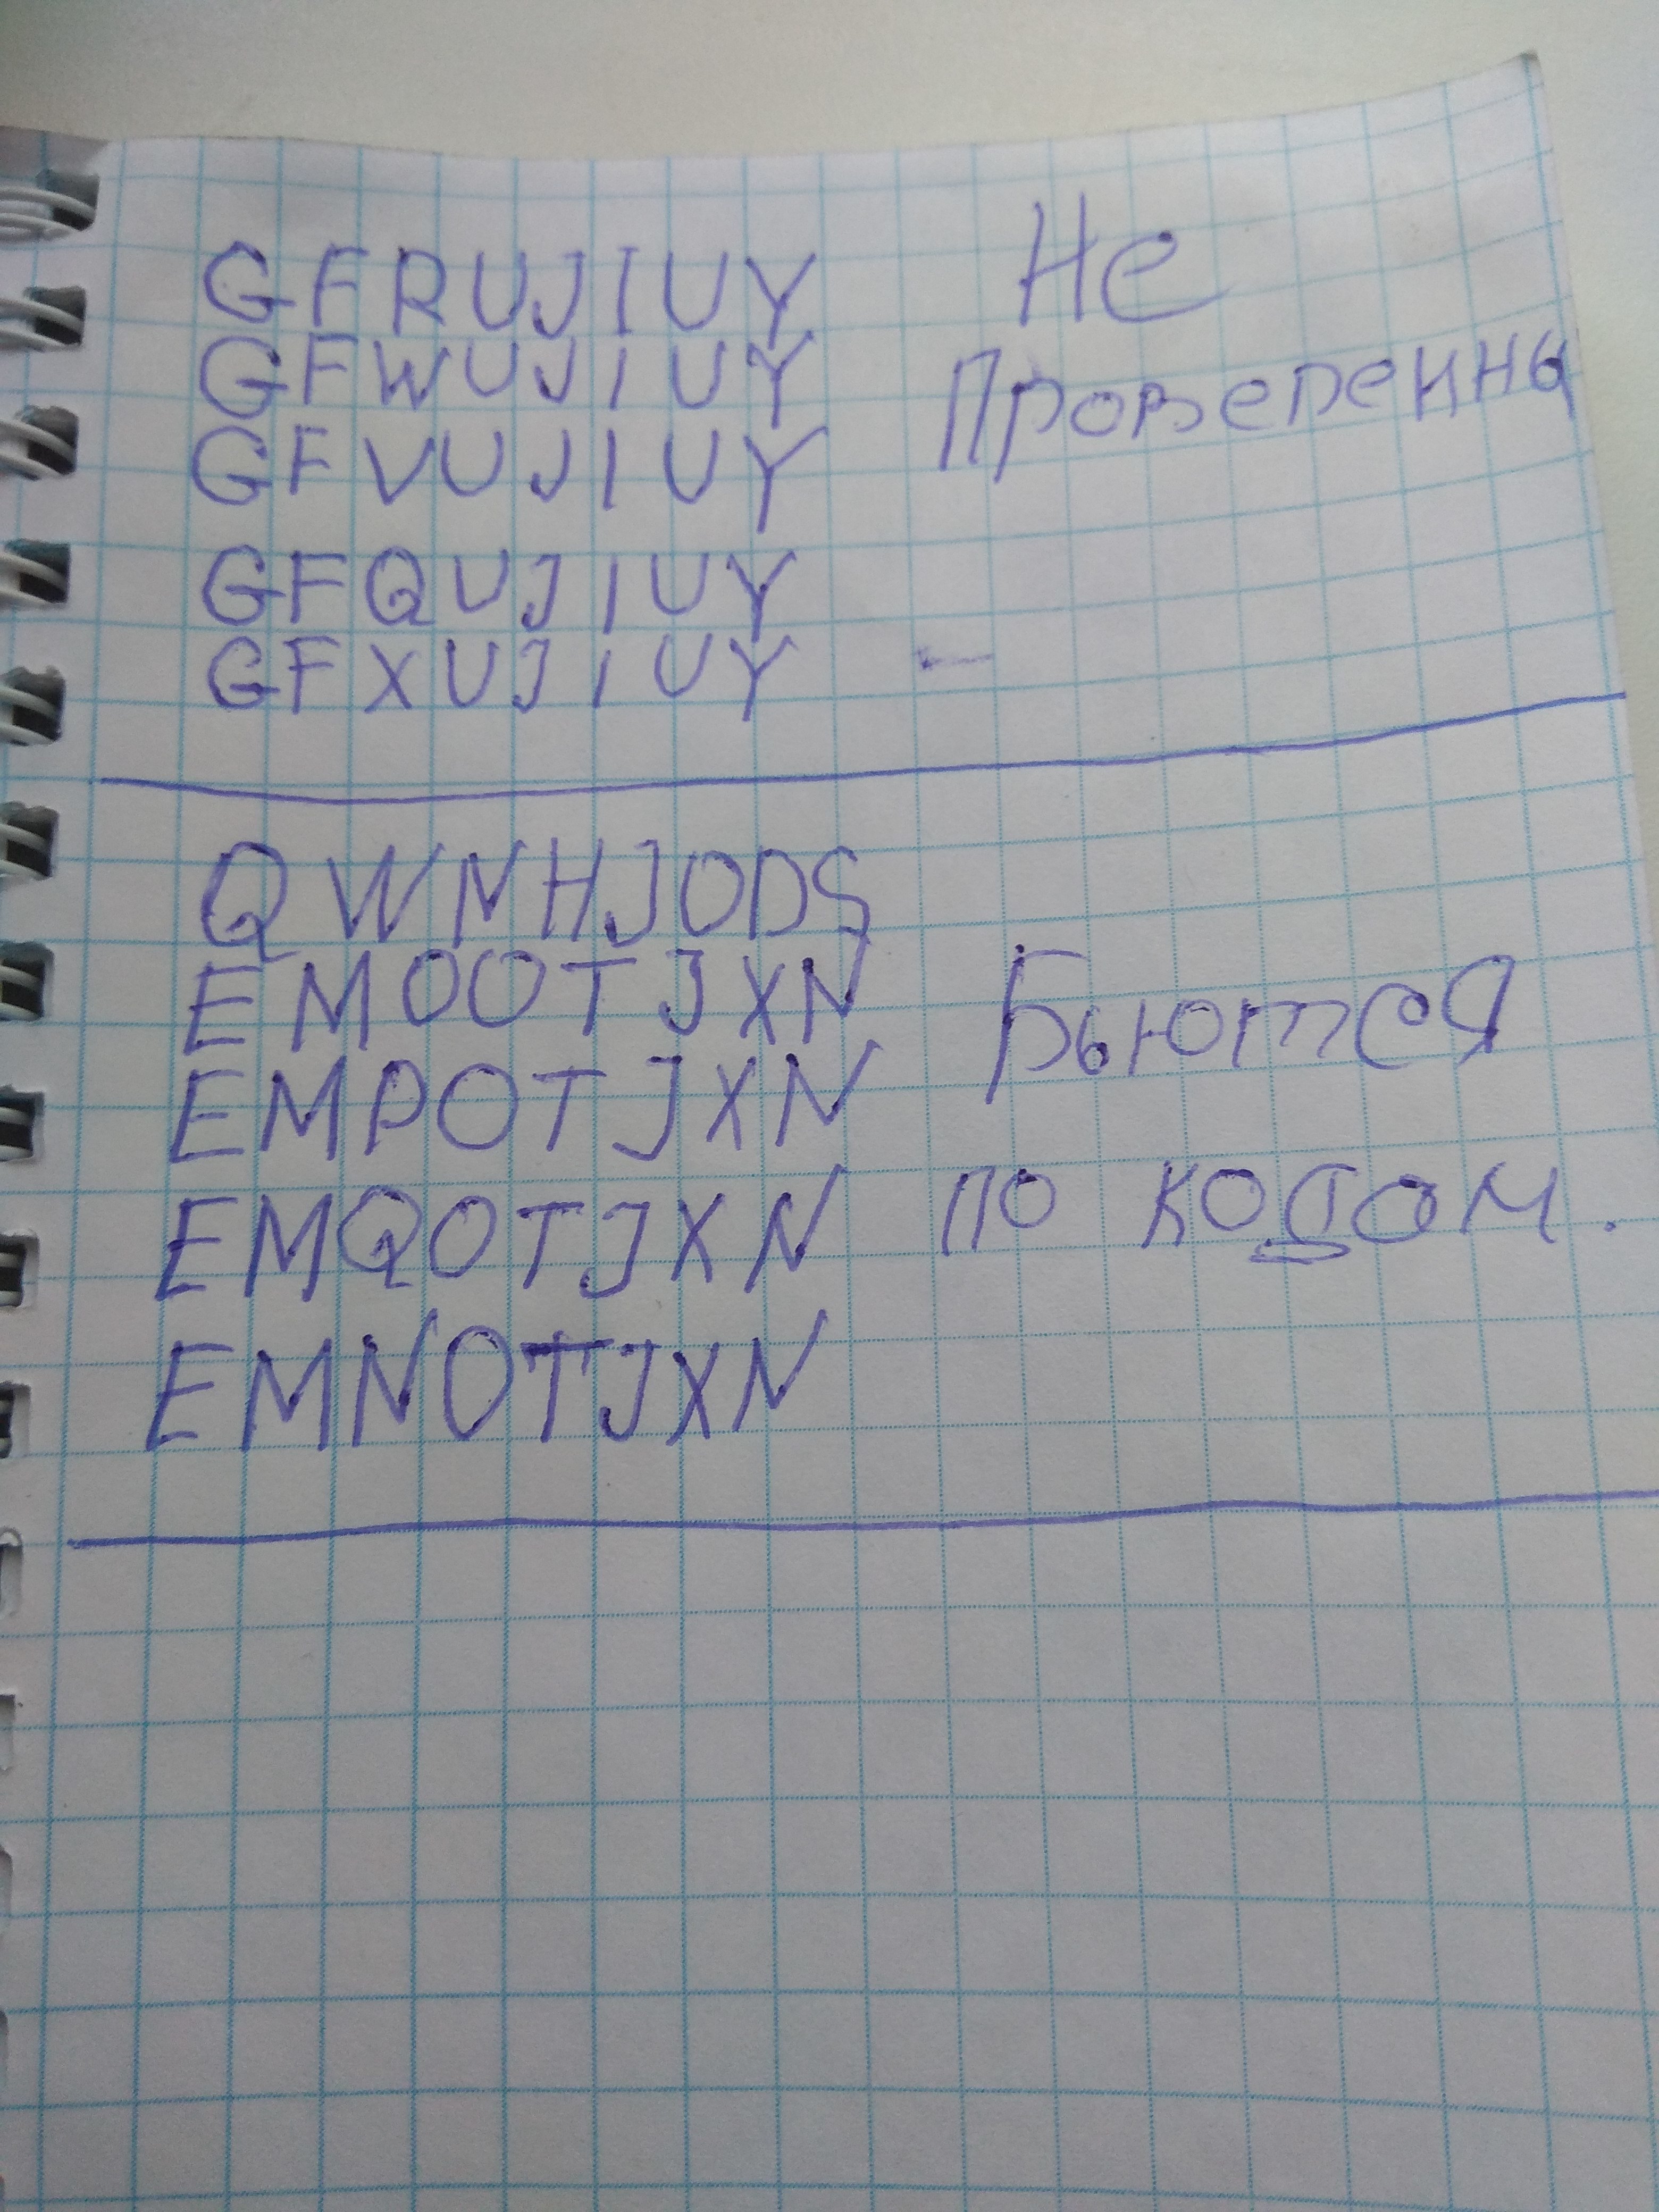 GFRUJIUY Не
GFWUJIUY Проверенны
GFVUJIUY
GFQUJIUY
GFXUJIUY
QWNHJODS
EMOOTJXN Бьются
EMPOTJXN
EMQOTJXN по кодам.
EMNOTJXN